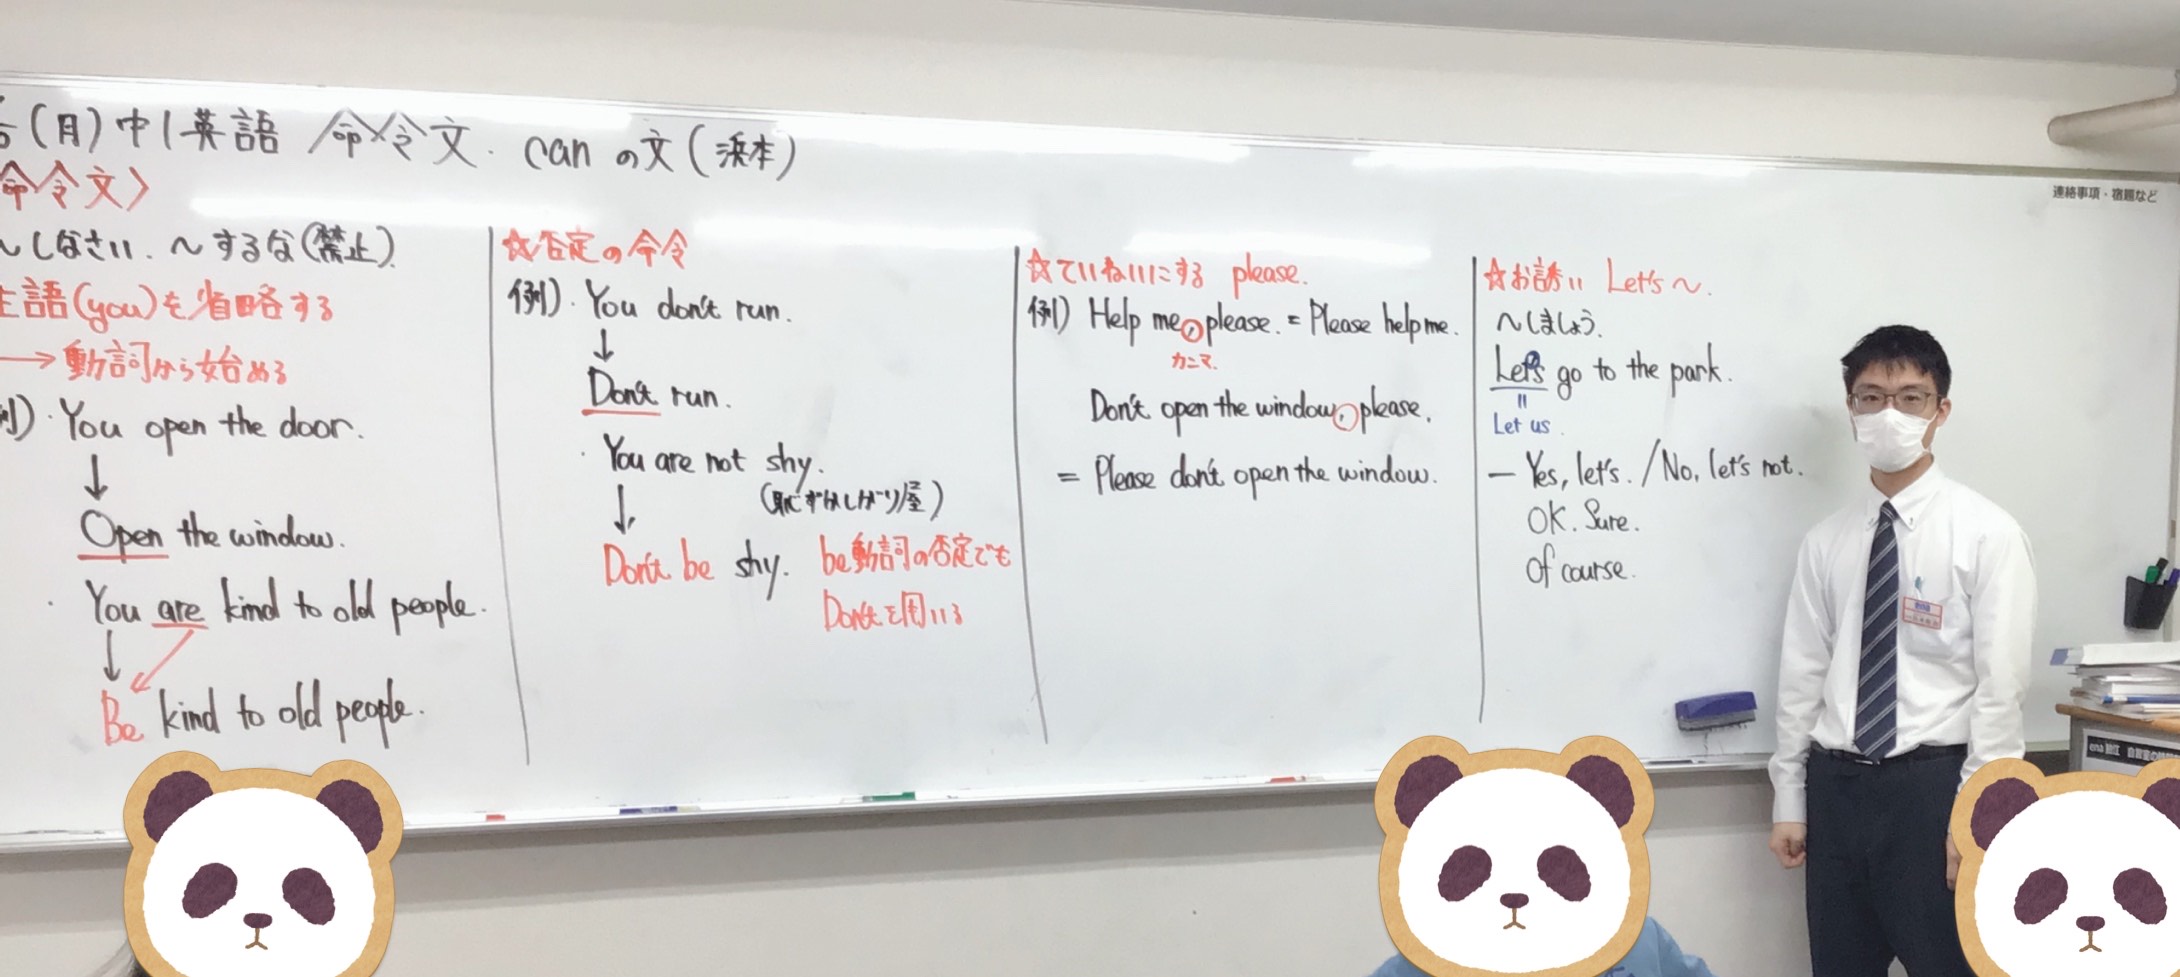 (月)中1英語 命令文. can の文(浜本)
命令文〉
〜しなさい. 〜するな(禁止).
主語(you)を省略する
→動詞から始める
例)・You open the door.
↓
Open the window.
・You are kind to old people.
↓
Be kind to old people.
☆否定の命令
例)・You don't run.
↓
Don't run.
・You are not shy.
(恥ずかしがり屋)
↓
Don't be shy.
be動詞の否定でも
Don'tを用いる
☆ていねいにする please.
例) Help me, please. = Please help me.
カンマ.
Don't open the window, please.
= Please don't open the window.
☆お誘い Let's 〜.
〜しましょう.
Let's go to the park.
=
Let us.
– Yes, let's. / No, let's not.
OK. Sure.
Of course.
連絡事項・宿題など
ena